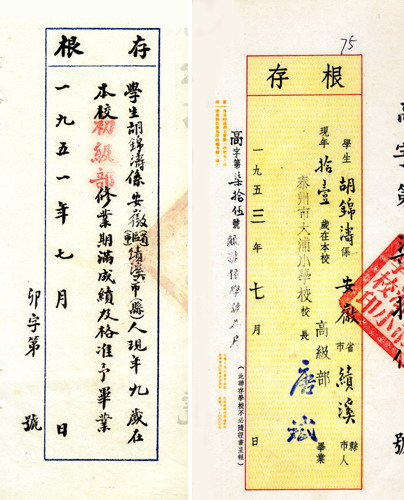 存根
學生胡錦濤係安徽省績溪市(縣)人現年九歲在
本校初級部修業期滿成績及格准予畢業
一九五一年七月 日
卯字第 號
75
根存
學生胡錦濤係安徽省績溪縣市人
現年拾壹歲在本校高級部畢業
泰州市大浦小學校
校長唐斌
一九五三年七月 日
高字第柒拾伍號
(此聯存學校不必隨證書呈報)
高字第
號